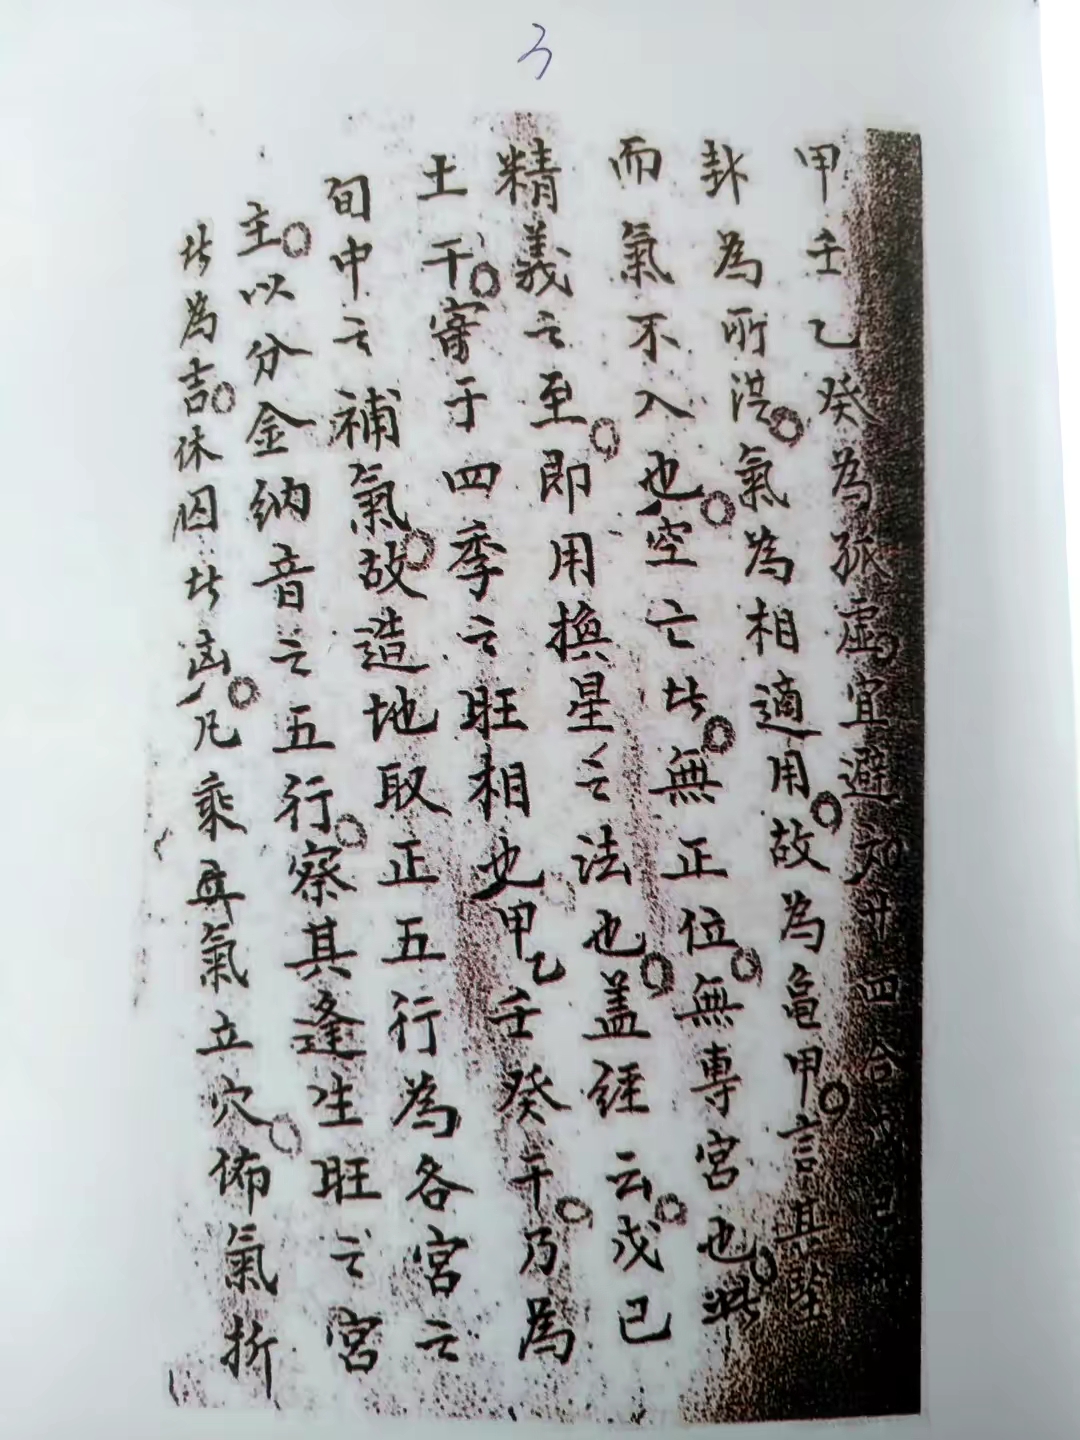 3
甲壬乙癸為孤虛。宜避为廿四合戊己
卦為所洪。氣為相適用。故為龜甲。言其堅
而氣不入也。空亡此。無正位。無專宮也。此
精義之至。即用換星之法也。盖経云。戊己
土干。寄于四季之旺相也。甲乙壬癸干。乃為
旬中之補氣。故造地取正五行為各宮之
主。以分金納音之五行。察其逢生旺之宮
此為吉。休囚此凶。凡乘再氣立穴。佈氣折